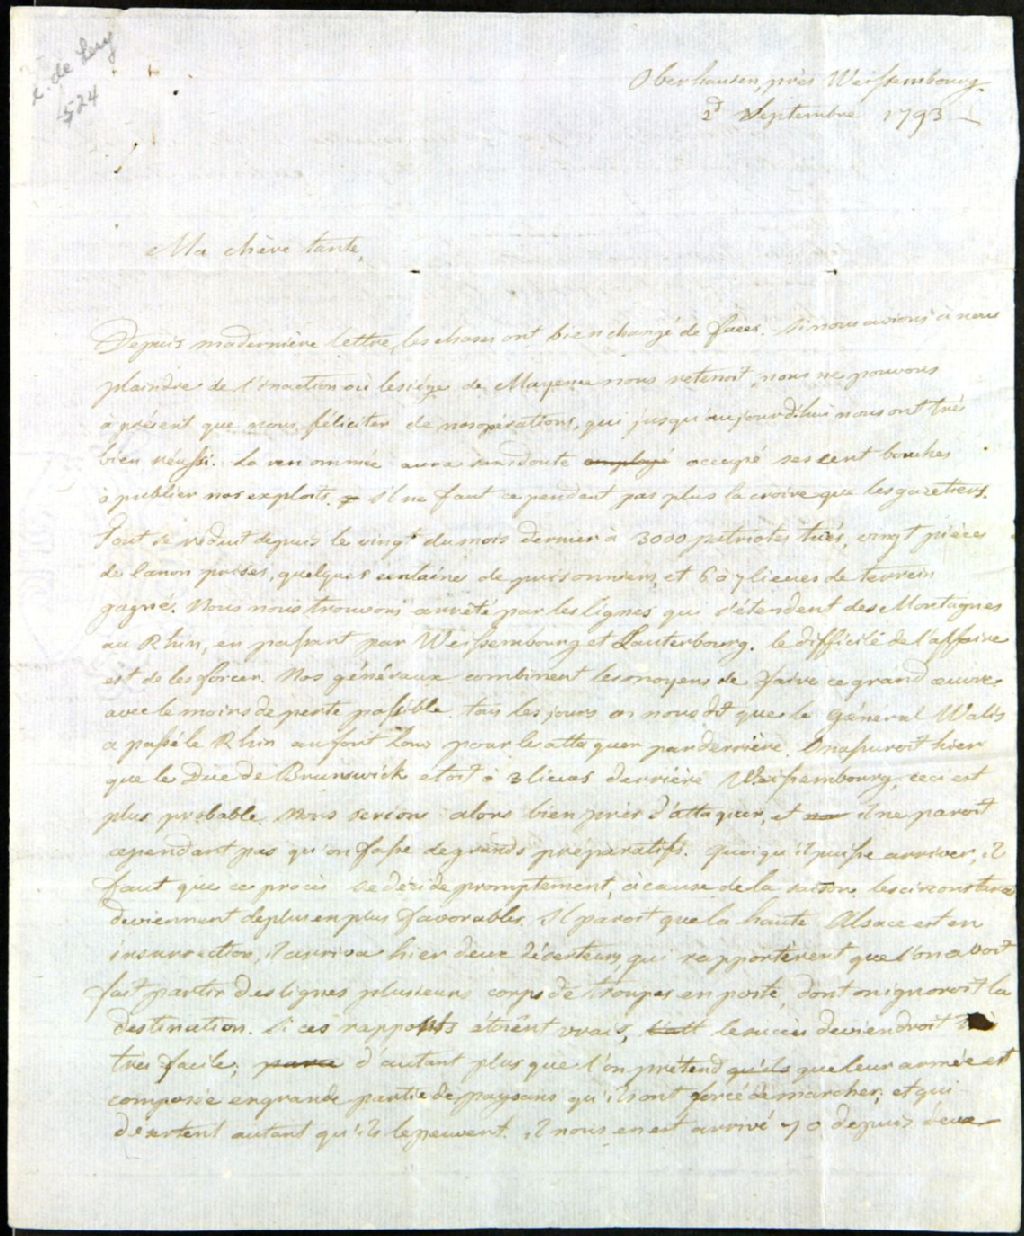 de Lery
524
Oberhausen, près Weissembourg
2d Septembre 1793
Ma chère tante,
Depuis ma dernière lettre, les choses ont bien changé de faces. Si nous avions à nous
plaindre de l'inaction où le siège de Mayence nous retenoit, nous ne pouvons
à présent que nous féliciter de nos opérations, qui jusqu'aujourd'hui nous ont très
bien réussi. La renommée aura sans doute employé occupé ses cent bouches
à publier nos exploits. Il ne faut cependent pas plus la croire que les gazetiers.
Tout se réduit depuis le vingt du mois dernier à 3000 patriotes tués, vingt pièces
de canon prises, quelques centaines de prisonniers, et 6 à 7 lieues de terrein
gagné. Nous nous trouvons arrêté par les lignes qui s'étendent des Montagnes
au Rhin, en passant par Weissembourg et Lauterbourg. le difficile de l'affaire
est de les forcer. Nos généraux combinent les moyens de faire ce grand œuvre
avec le moins de perte possible. tous les jours on nous dit que le Général Wallis
a passé le Rhin au fort Louis pour le attaquer par derrière. On assuroit hier
que le Duc de Brunswick etoit à 3 lieues derrière Weissembourg, ceci est
plus probable. Nous serions alors bien près d'attaquer, et il ne paroit
cependant pas qu'on fasse de grands préparatifs. Quoiqu'il puisse arriver, il
faut que ce procès se décide promptement, à cause de la saison. les circonstances
deviennent de plus en plus favorables. Il paroit que la haute Alsace est en
insurrection, il arriva hier deux déserteurs qui rapportèrent que l'on avoit
fait partir des lignes plusieurs corps de troupes en poste, dont on ignoroit la
destination. Si ces rapports étoient vrais, le succès deviendroit
très facile; d'autant plus que l'on prétend qu'ils que leur armée est
composée en grande partie de paysans qu'ils ont forcé de marcher, et qui
désertent autant qu'ils le peuvent. il nous en est arrivé 70 depuis deux